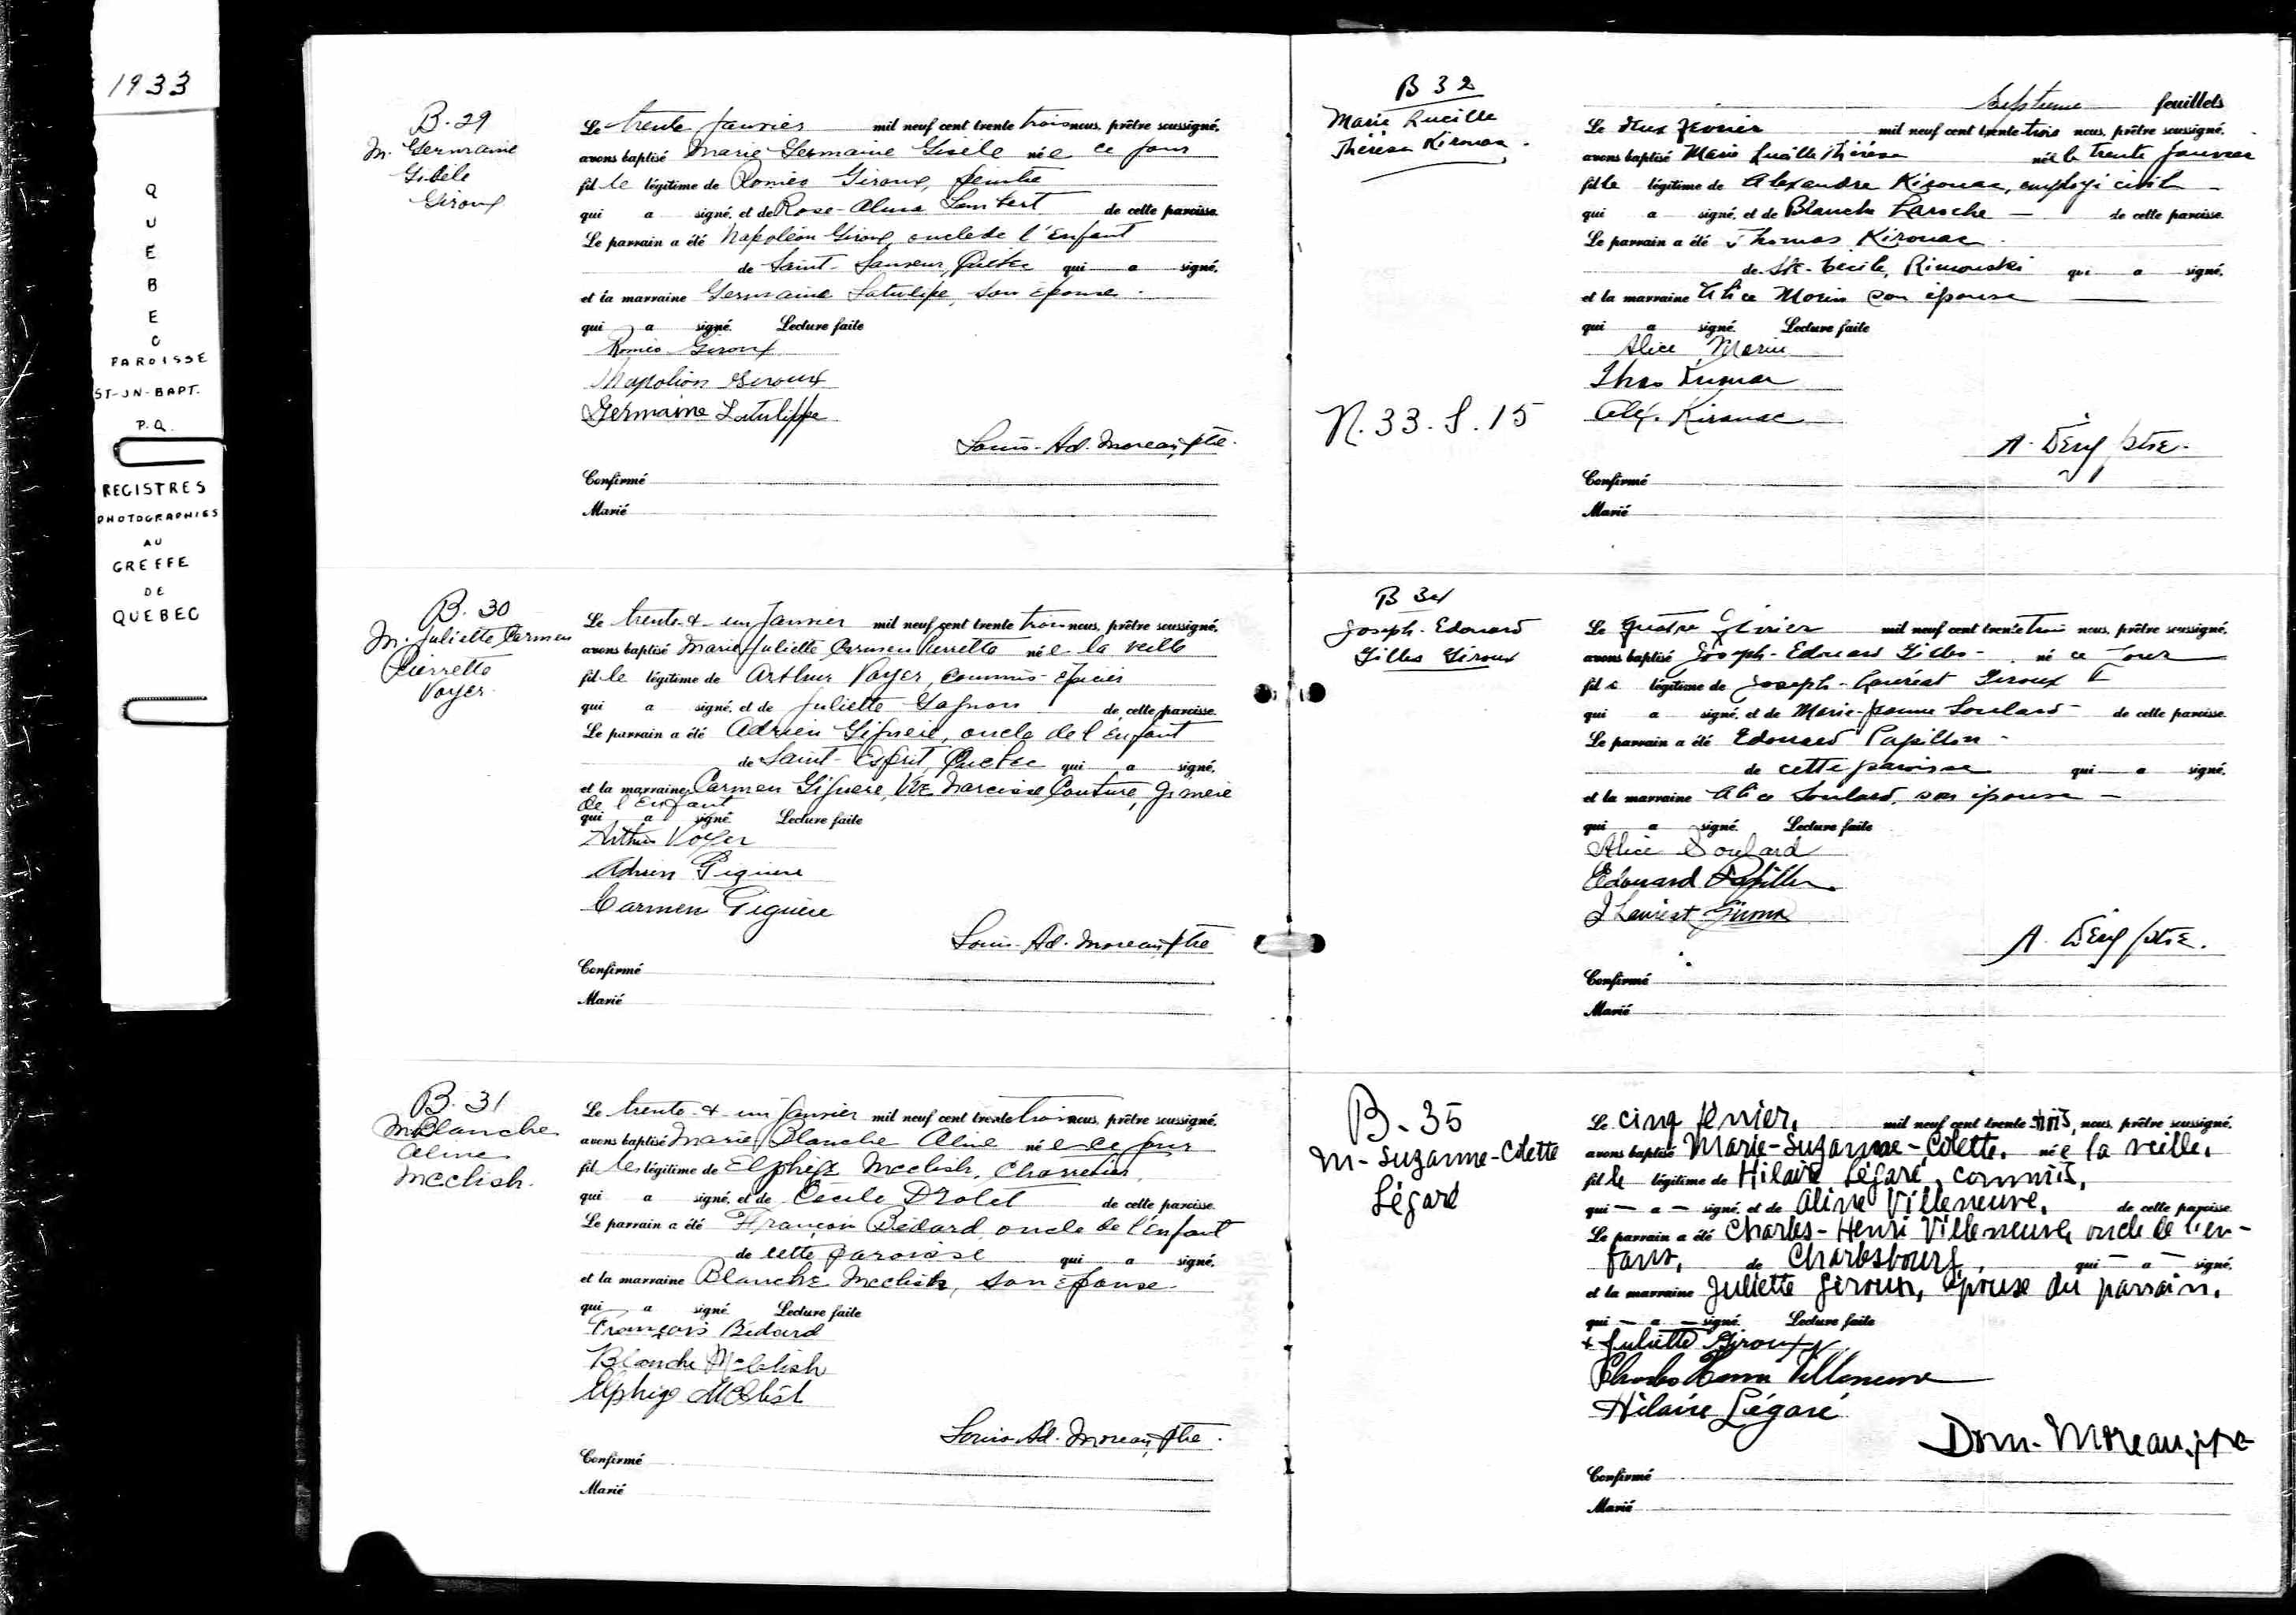 1933
QUEBEC
PAROISSE
ST-JN-BAPT.
P.Q.
REGISTRES
PHOTOGRAPHIES
AU
GREFFE
DE
QUEBEC
B. 29
M. Germaine
Gisèle
Giroux
Le trente Janvier mil neuf cent trente trois nous, prêtre soussigné,
avons baptisé Marie Germaine Gisèle née ce jour
fille légitime de Roméo Giroux, peintre
qui a signé, et de Rose-Alma Lambert de cette paroisse.
Le parrain a été Napoléon Giroux, oncle de l'Enfant
de Saint-Sauveur, Québec qui a signé,
et la marraine Germaine Latulipe, son épouse.
qui a signé. Lecture faite
Roméo Giroux
Napoléon Giroux
Germaine Latulippe
Louis-Ad. Moreau, ptre.
Confirmé
Marié
B. 30
M. Juliette Carmen
Pierrette
Voyer.
Le trente & un Janvier mil neuf cent trente trois nous, prêtre soussigné,
avons baptisé Marie Juliette Carmen Pierrette née la veille
fille légitime de Arthur Voyer, commis-épicier
qui a signé, et de Juliette Gagnon de cette paroisse.
Le parrain a été Adrien Giguère, oncle de l'enfant
de Saint-Esprit, Québec qui a signé,
et la marraine Carmen Giguere, Vve Narcisse Couture, gr mère
de l'Enfant
qui a signé. Lecture faite
Arthur Voyer
Adrien Giguere
Carmen Giguère
Louis-Ad. Moreau, ptre
Confirmé
Marié
B. 31
M Blanche
Aline
McClish.
Le trente & un Janvier mil neuf cent trente trois nous, prêtre soussigné,
avons baptisé Marie Blanche Aline née ce jour
fille légitime de Elphège McClish, Charretier
qui a signé, et de Cécile Drolet de cette paroisse.
Le parrain a été François Bédard oncle de l'Enfant
de cette paroisse qui a signé,
et la marraine Blanche McClish, son Epouse
qui a signé. Lecture faite
François Bédard
Blanche McClish
Elphège McClish
Louis-Ad. Moreau, ptre.
Confirmé
Marié
Septième feuillets
B 32
Marie Lucille
Thérèse Kirouac.
N. 33. S. 15
Le deux février mil neuf cent trente trois nous, prêtre soussigné,
avons baptisé Marie Lucille Thérèse née le trente janvier
fille légitime de Alexandre Kirouac, employé civil
qui a signé, et de Blanche Laroche — de cette paroisse.
Le parrain a été Thomas Kirouac.
de Ste-Cécile, Rimouski qui a signé,
et la marraine Alice Morin son épouse —
qui a signé. Lecture faite
Alice Morin
Alex. Kirouac
Confirmé
Marié
B 34
Joseph-Edouard
Gilles Giroux
Le quatre février mil neuf cent trente trois nous, prêtre soussigné,
avons baptisé Joseph-Edouard Gilles - né ce jour
fils légitime de Joseph-Lauréat Giroux
qui a signé, et de Marie-Jeanne Soulard - de cette paroisse.
Le parrain a été Edouard Papillon -
de cette paroisse qui a signé,
et la marraine Alice Soulard, son épouse -
qui a signé. Lecture faite
Alice Soulard
Edouard Papillon
J Lauréat Giroux
Confirmé
Marié
B-35
M-Suzanne-Colette
Légaré
Le cinq février, mil neuf cent trente trois, nous, prêtre soussigné,
avons baptisé Marie-Suzanne-Colette, née la veille,
fille légitime de Hilaire Légaré, commis,
qui — a — signé, et de Aline Villeneuve, de cette paroisse.
Le parrain a été Charles-Henri Villeneuve, oncle de l'en-
fant, de Charlesbourg, qui — a — signé,
et la marraine Juliette Giroux, épouse du parrain,
qui — a — signé. Lecture faite
+ Juliette Giroux
Charles Henri Villeneuve
Hilaire Légaré
Dom. Moreau, ptre
Confirmé
Marié